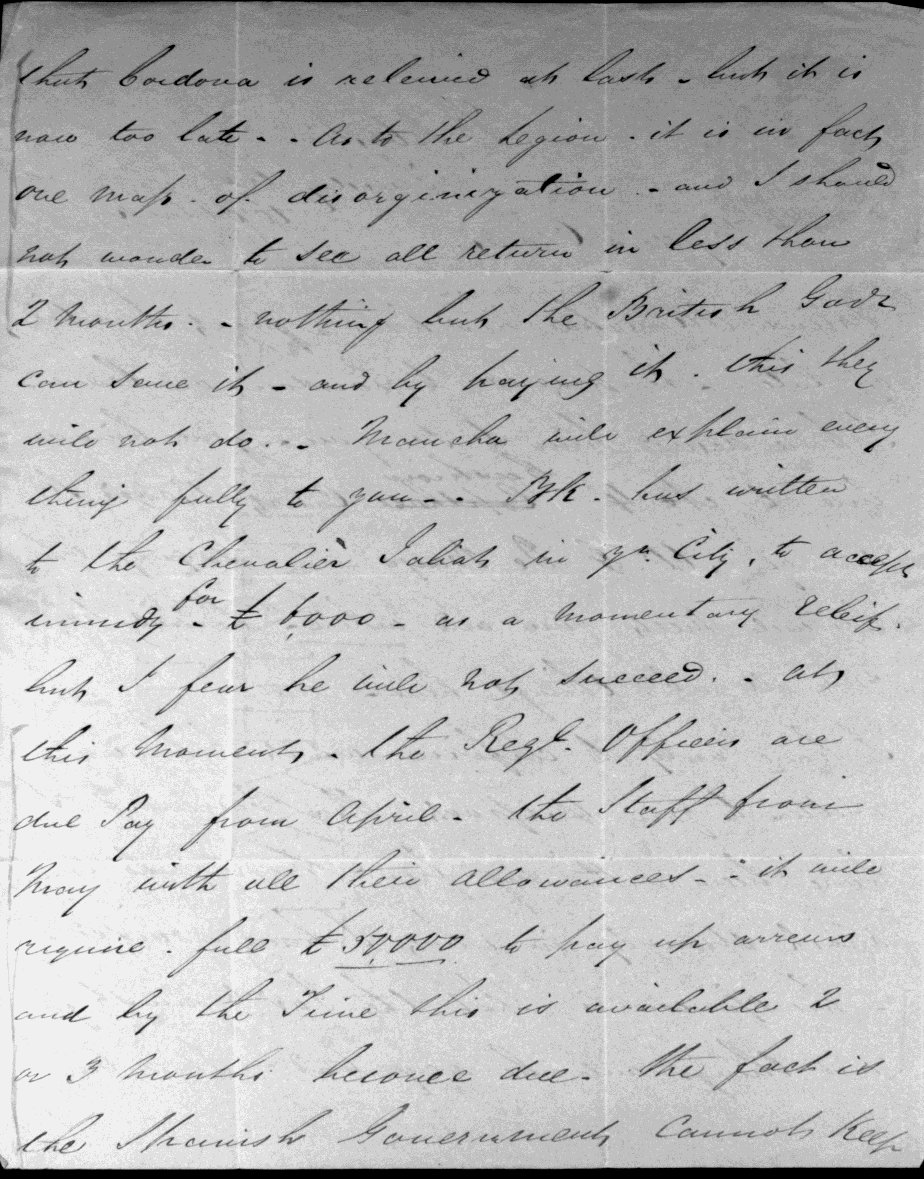 that Cordova is releived at last - but it is
now too late - - As to the Legion - it is in fact
one mass - of disorginization - and I should
not wonder to see all return in less than
2 months - - nothing but the British Govt
can save it - and by paying it. this they
will not do - - Mancha will explain every
thing fully to you - . has written
to the Chevalier in yr. City, to accept
immdy - for £ 6,000 - as a momentary releif.
but I fear he will not succeed. - at
this moment - the Regl. Officers are
due Pay from April - the Staff from
May with all their allowances - - it will
require - full £ 50,000 to pay up arrears
and by the Time this is available 2
or 3 months become due - the fact is
the Spanish Government cannot keep